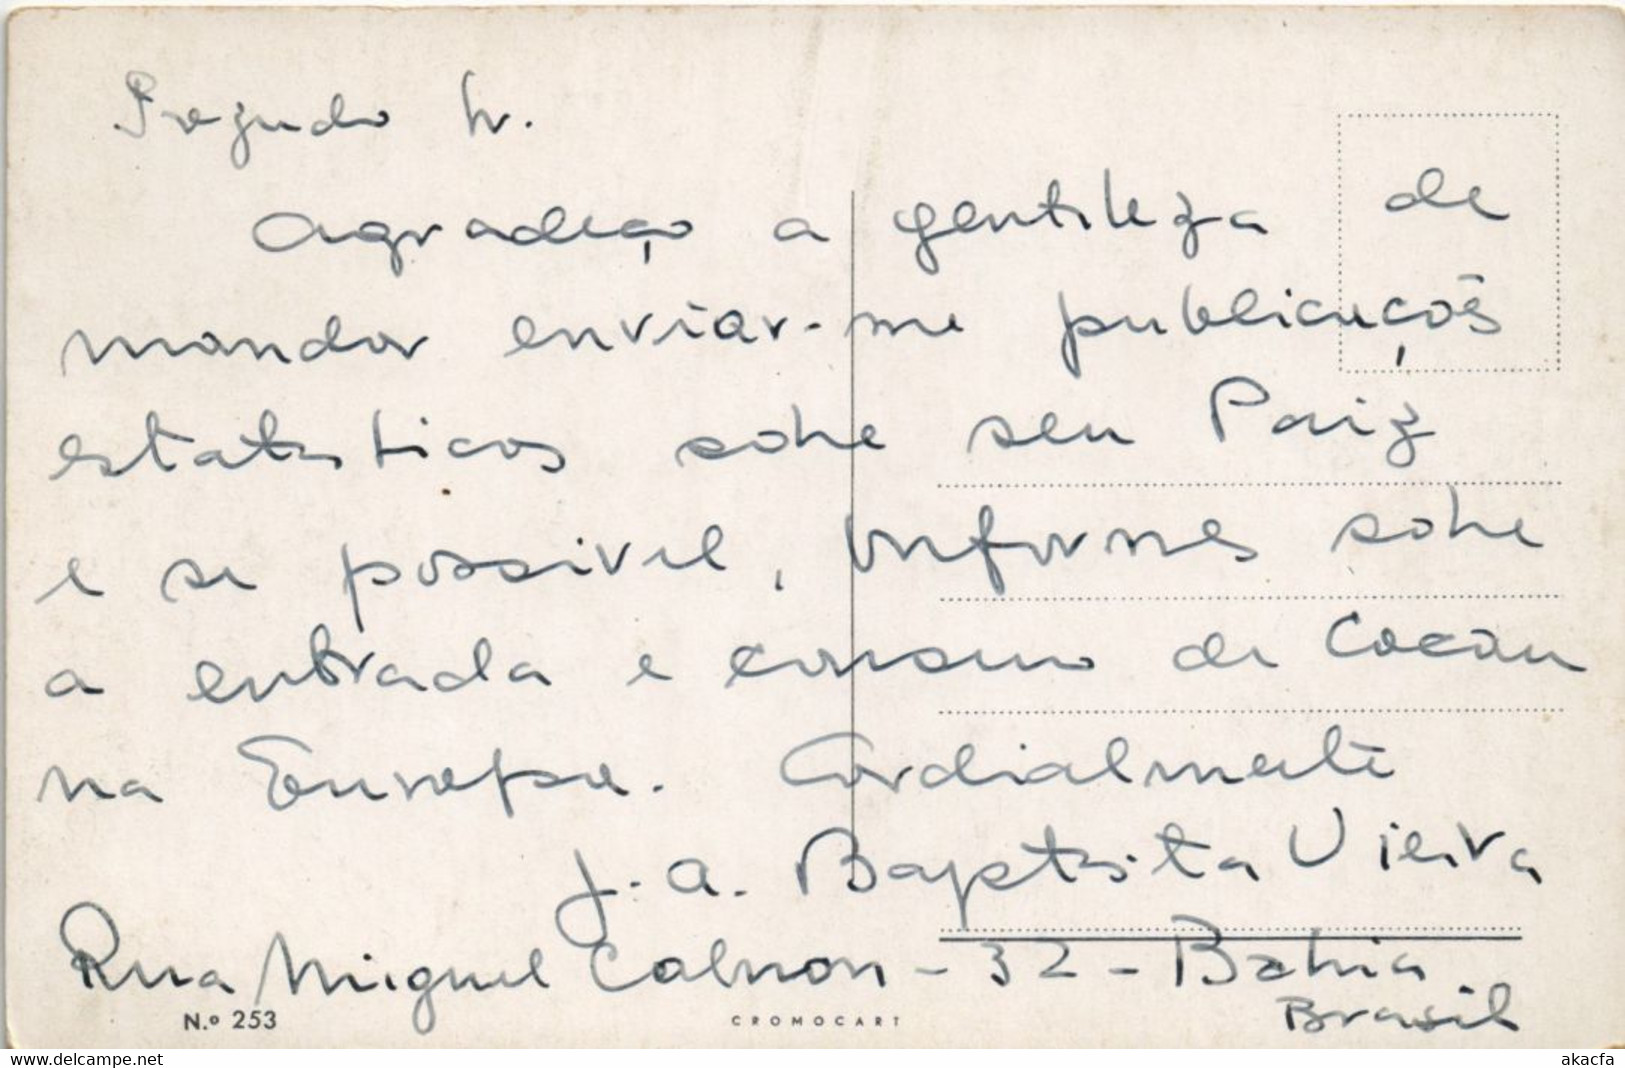 Prezado Sr.
Agradeço a gentileza de
mandar enviar-me publicações
estatisticas sobre seu Paiz
e se possivel, informes sobre
a entrada e consumo de Cacau
na Europa. Cordialmente
J. A. Baptista Vieira
Rua Miguel Calmon - 32 - Bahia
Brasil
N.º 253
CROMOCART
www.delcampe.net
akacfa